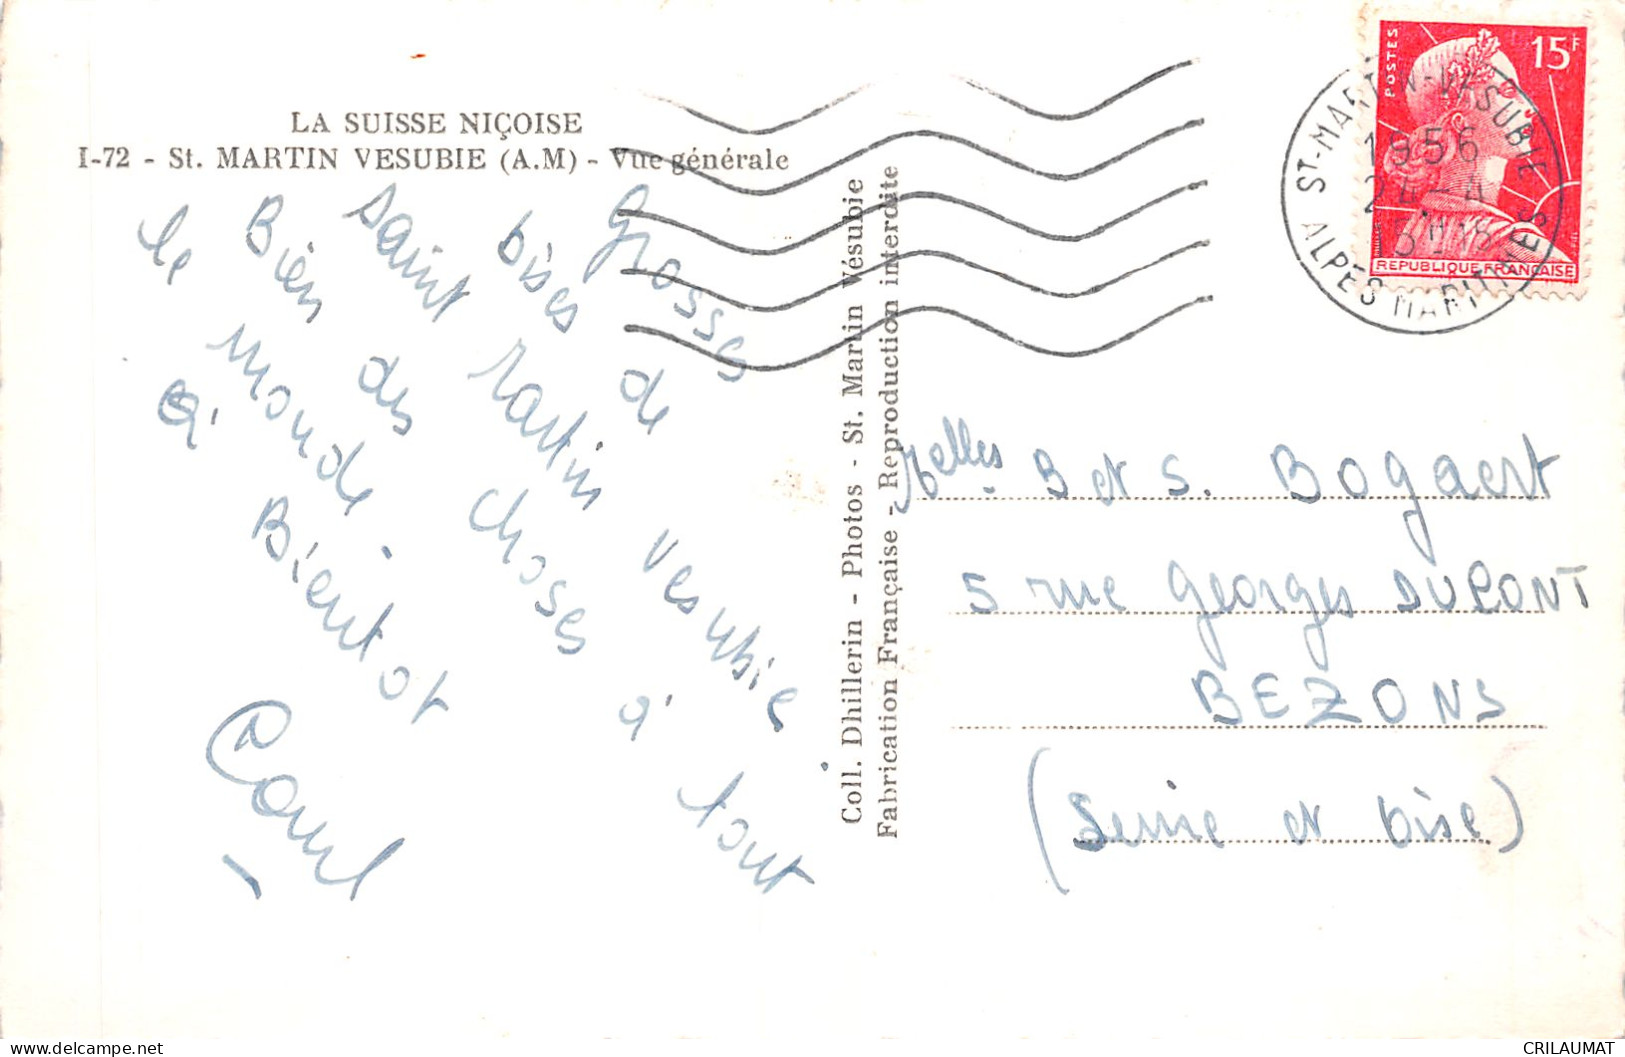 LA SUISSE NIÇOISE
I-72 - St. MARTIN VESUBIE (A.M) - Vue générale
Grosses
bises de
Saint Martin Vesubie
Bien des choses à tout
le monde
à Bientot
Coll. Dhillerin - Photos - St. Martin Vésubie
Fabrication Française - Reproduction interdite
POSTES
15F
REPUBLIQUE FRANÇAISE
ST-MARTIN-VESUBIE
1956
24-4
ALPES MARITIMES
Melles B et S. Bogaert
5 rue Georges DUPONT
BEZONS
(Seine et Oise)
delcampe.net
CRILAUMAT